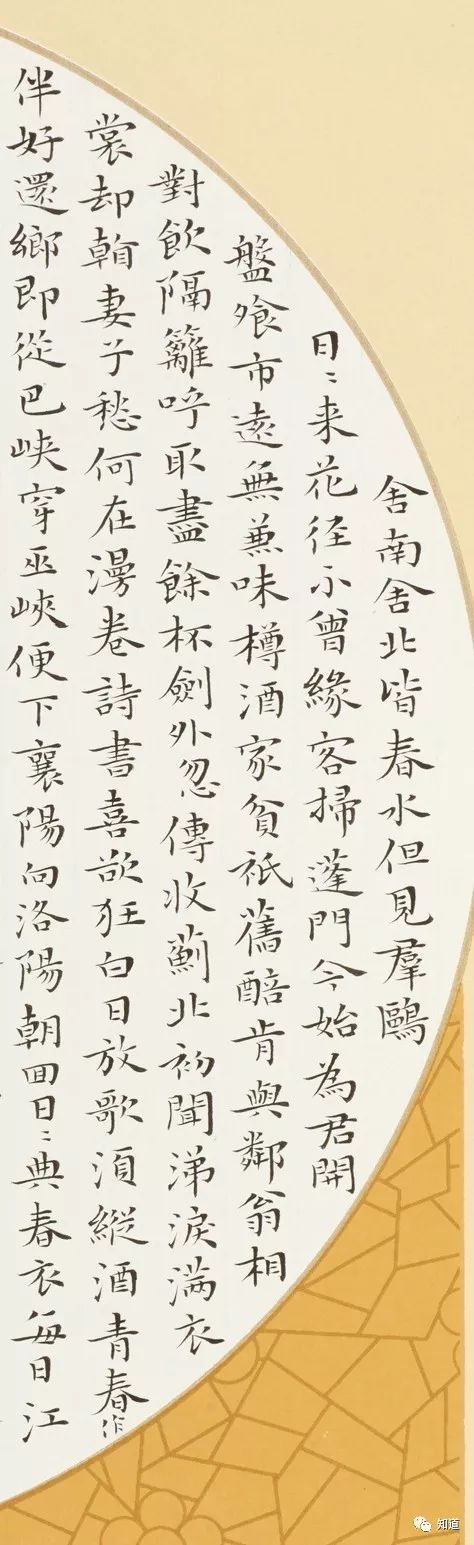 舍南舍北皆春水但見羣鷗
日〻来花径不曾緣客掃蓬門今始為君開
盤飱市遠無兼味樽酒家貧秖舊醅肯與鄰翁相
對飲隔籬呼取盡餘杯劍外忽傳收薊北初聞涕淚滿衣
裳却翰妻子愁何在漫卷詩書喜欲狂白日放歌須縱酒青春作
伴好還鄉即從巴峽穿巫峽便下襄陽向洛陽朝囬日〻典春衣每日江
知道